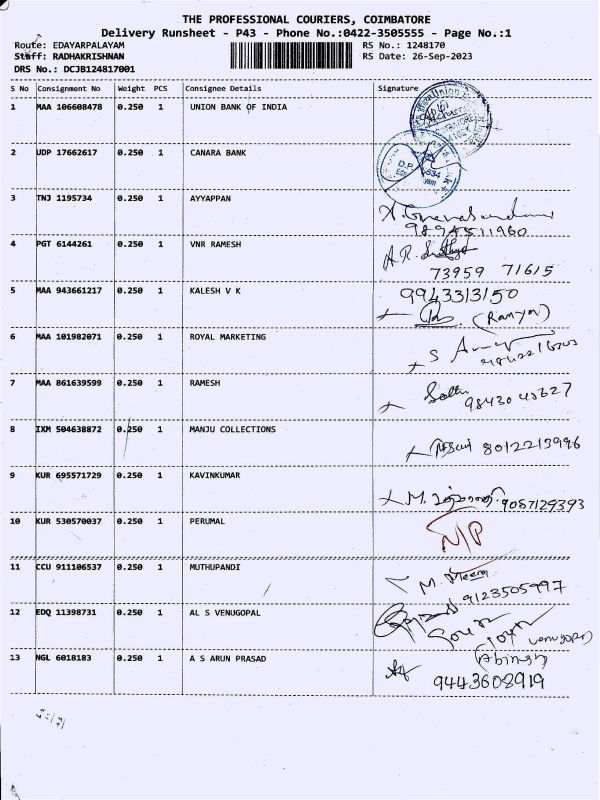 THE PROFESSIONAL COURIERS, COIMBATORE
Delivery Runsheet - P43 - Phone No.:0422-3505555 - Page No.:1
Route: EDAYARPALAYAM RS No.: 1248170
Staff: RADHAKRISHNAN RS Date: 26-Sep-2023
DRS No.: DCJB124817001
S No Consignment No Weight PCS Consignee Details Signature
1 MAA 106608478 0.250 1 UNION BANK OF INDIA
2 UDP 17662617 0.250 1 CANARA BANK
3 TNJ 1195734 0.250 1 AYYAPPAN
9894511960
4 PGT 6144261 0.250 1 VNR RAMESH
73959 71615
5 MAA 943661217 0.250 1 KALESH V K 9943313150
(Ramya)
6 MAA 101982071 0.250 1 ROYAL MARKETING
7 MAA 861639599 0.250 1 RAMESH
8 IXM 504638872 0.250 1 MANJU COLLECTIONS
8012213996
9 KUR 695571729 0.250 1 KAVINKUMAR
9087129393
10 KUR 530570037 0.250 1 PERUMAL N/P
11 CCU 911106537 0.250 1 MUTHUPANDI
M. Meena
9123505997
12 EDQ 11398731 0.250 1 AL S VENUGOPAL
13 NGL 6018183 0.250 1 A S ARUN PRASAD (Abinesh)
9443608919